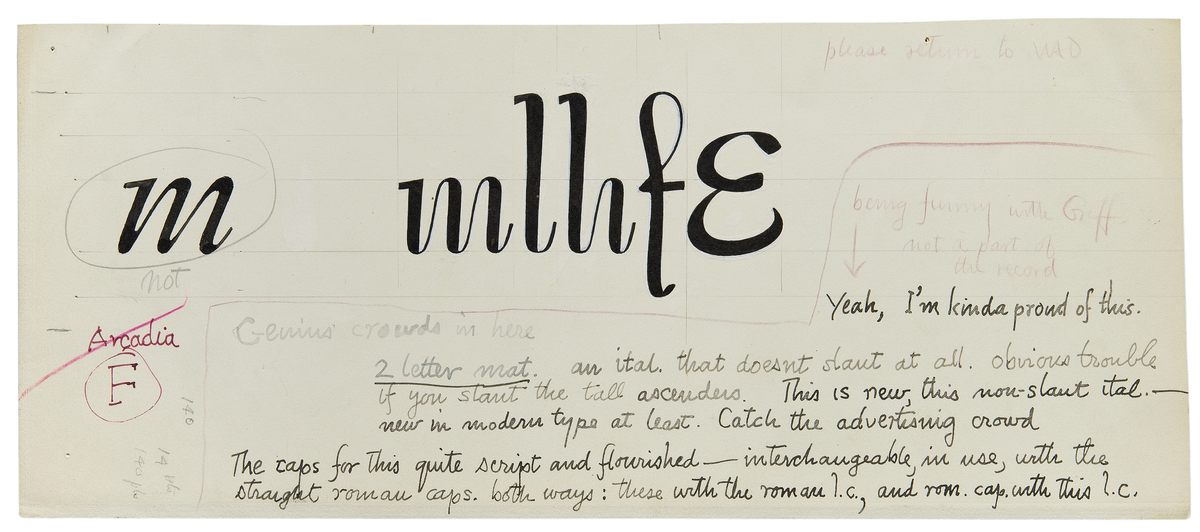 please return to WAD
m mlhfE
being funny with Griff
not a part of
the record
not
Yeah, I'm kinda proud of this.
Arcadia
F
Genius crowds in here
2 letter mat. an ital. that doesnt slant at all. obvious trouble
if you slant the tall ascenders. This is new, this non-slant ital. —
new in modern type at least. Catch the advertising crowd
140
14 pts
The caps for this quite script and flourished — interchangeable, in use, with the
straight roman caps. both ways: these with the roman l.c., and rom. cap. with this l.c.